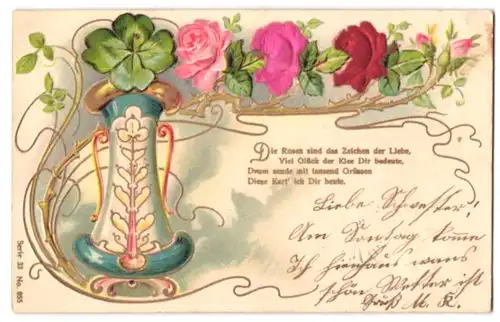 Die Rosen sind das Zeichen der Liebe,
Viel Glück der Klee Dir bedeute,
Drum sende mit tausend Grüssen
Diese Kart' ich Dir heute.
Liebe Schwester!
Am Sontag komme
Ich hienhaus wans
schön Wetter ist
Gruß M. K.
Serie 23 No. 855